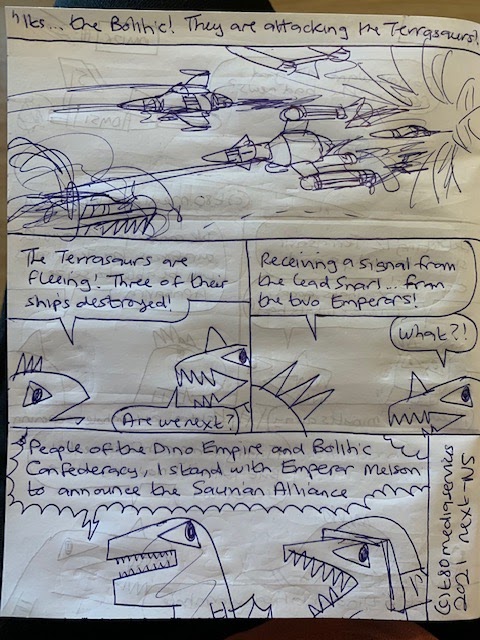 the Bolthic! They are attacking the Terrasaurs!
The Terrasaurs are
fleeing! Three of their
ships destroyed!
Are we next?
Receiving a signal from
the lead Snarl... from
the two Emperors!
What?!
People of the Dino Empire and Bolthic
Confederacy, I stand with Emperor Melson
to announce the Saurian Alliance
2021 next-NS